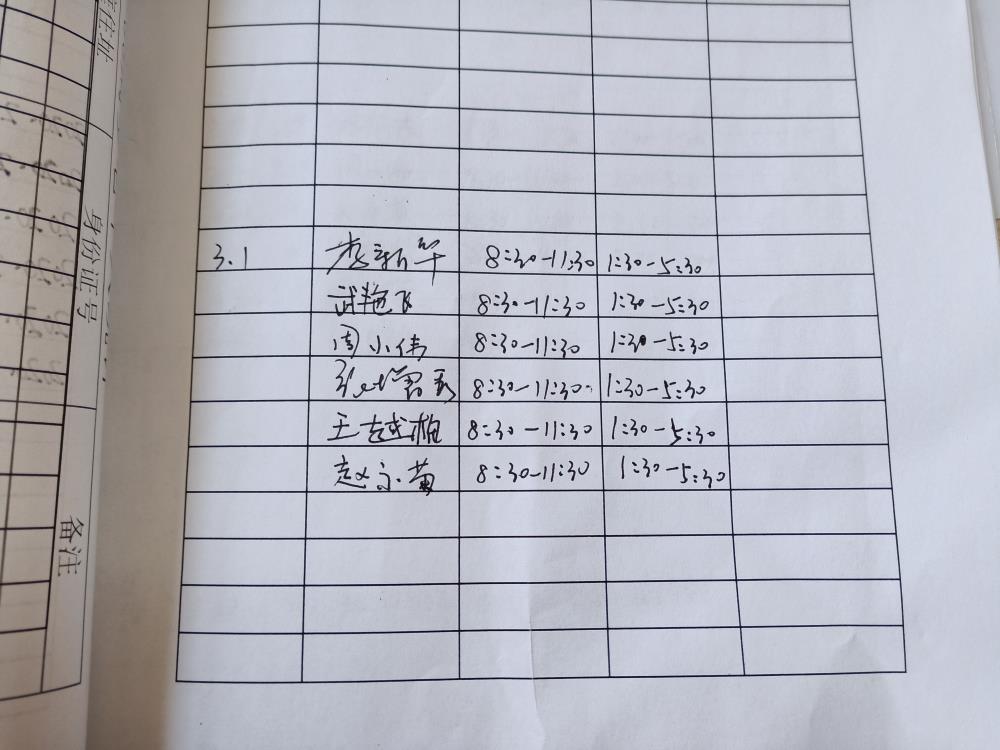 住址
身份证号
备注
3.1 李新华 8:30-11:30 1:30-5:30
武艳飞 8:30-11:30 1:30-5:30
周小伟 8:30-11:30 1:30-5:30
8:30-11:30 1:30-5:30
王越 8:30-11:30 1:30-5:30
赵永菊 8:30-11:30 1:30-5:30